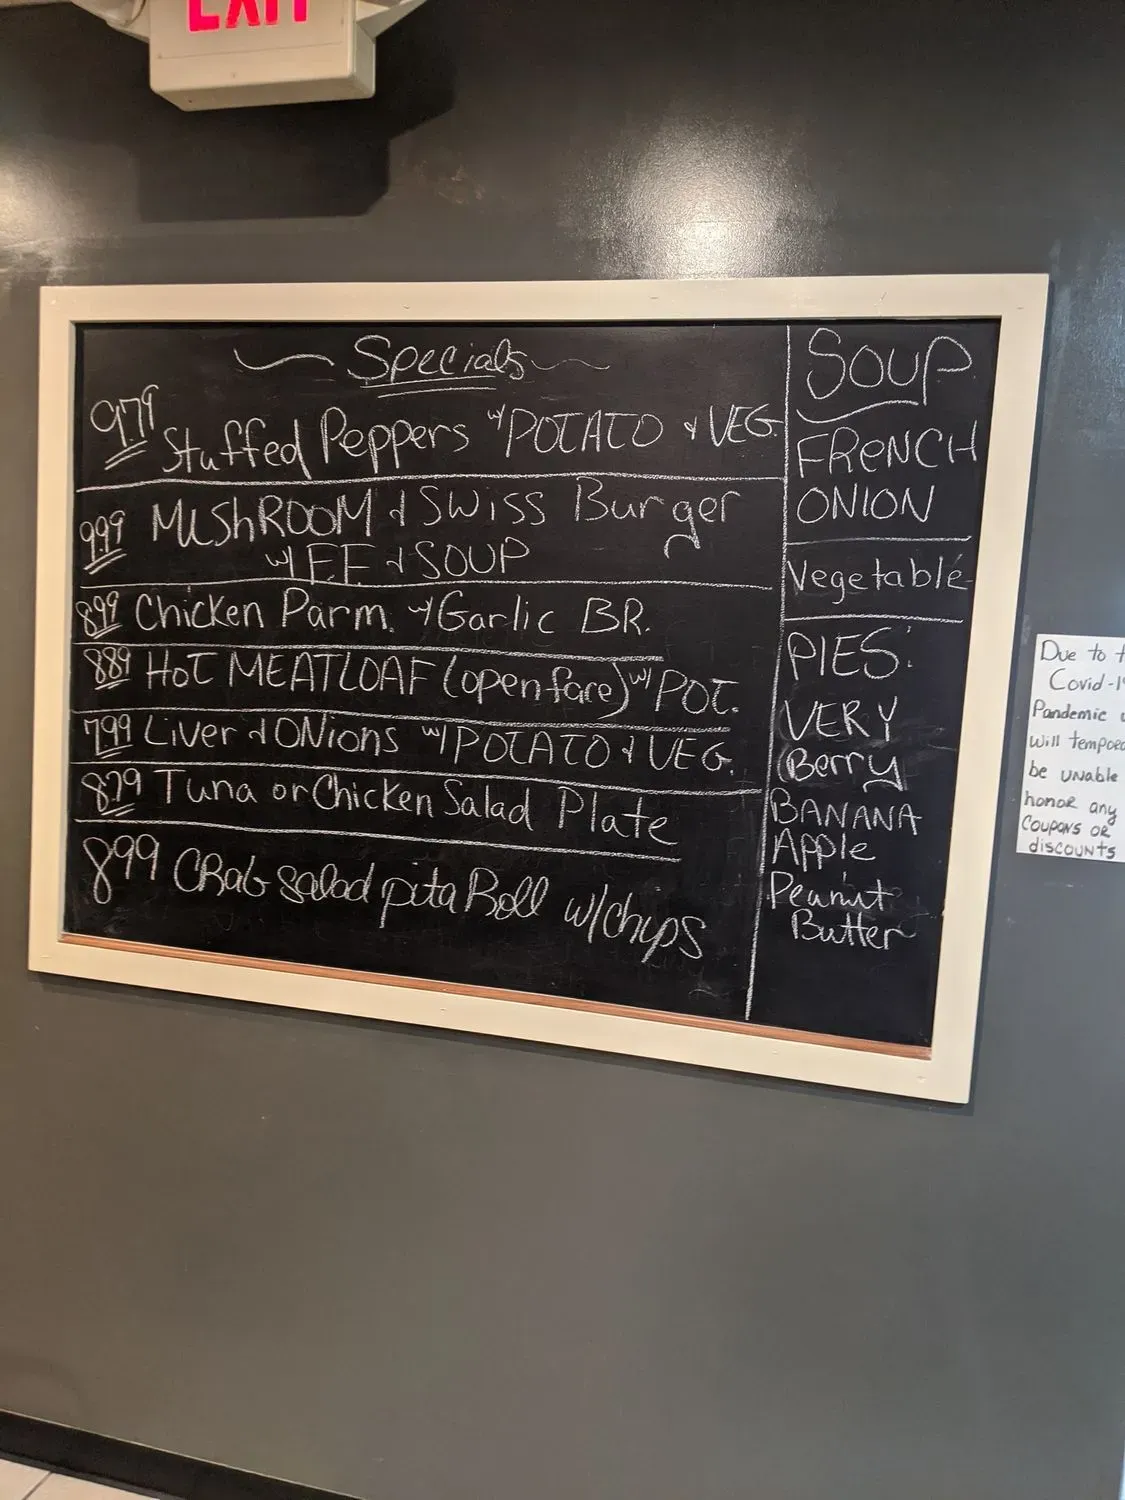 EXIT
Specials
9.79 Stuffed Peppers w/ POTATO & VEG.
9.99 MUSHROOM & SWISS Burger
w/ FF & SOUP
8.99 Chicken Parm. w/ Garlic BR.
8.89 HOT MEATLOAF (open fare) w/ POT.
7.99 Liver & ONions w/ POTATO & VEG.
8.79 Tuna or Chicken Salad Plate
8.99 CRab salad pita Roll w/ chips
SOUP
FRENCH
ONION
Vegetable
PIES:
VERY
Berry
BANANA
Apple
Peanut
Butter
Due to
Covid-19
Pandemic
will
be UNable
honor any
Coupons OR
discounts